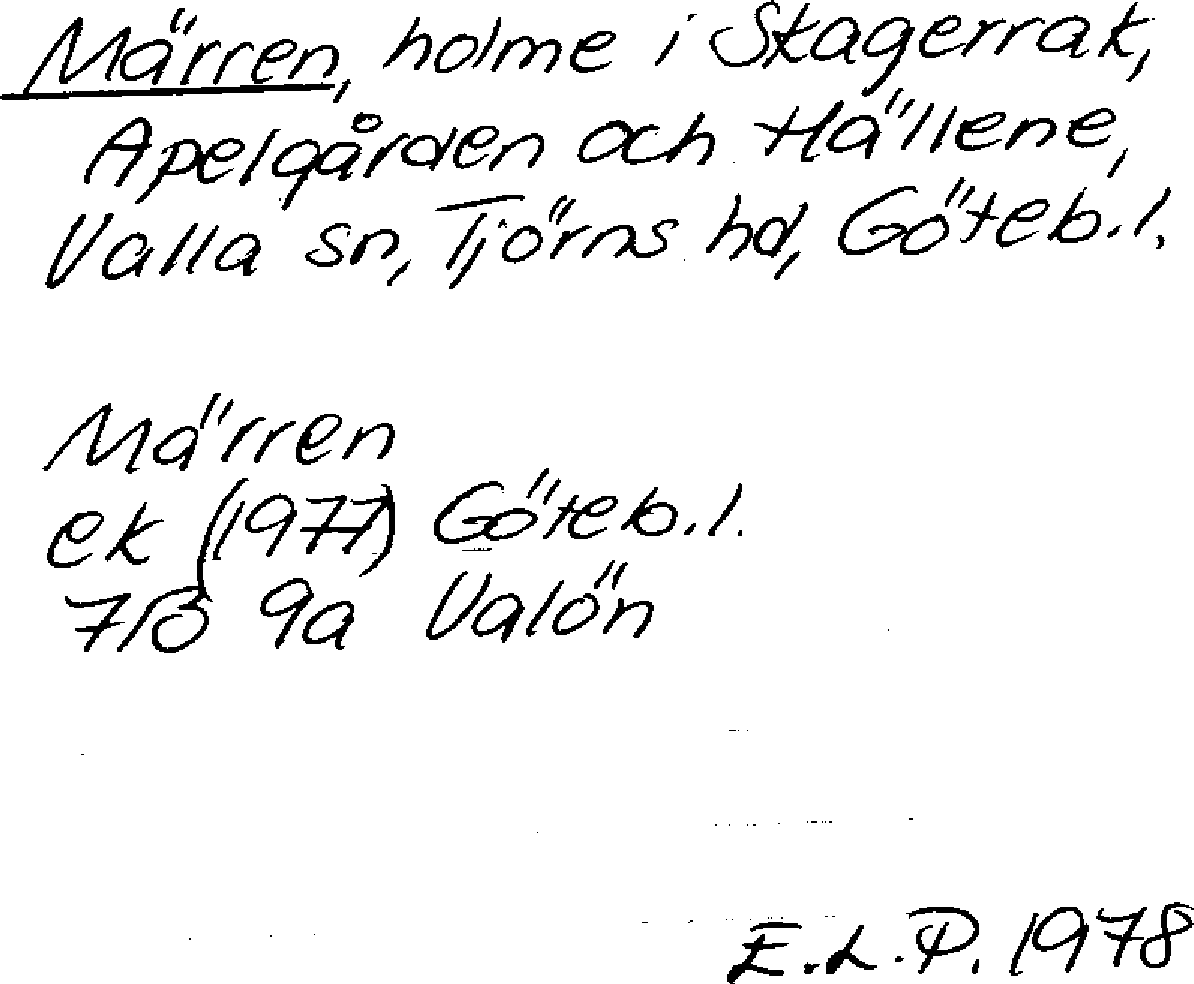 Märren, holme i Skagerrak,
Apelgården och Hällene,
Valla sn, Tjörns hd, Göteb.l.
Märren
ek (1977) Göteb.l.
7B 9a Valön
E.L.P. 1978